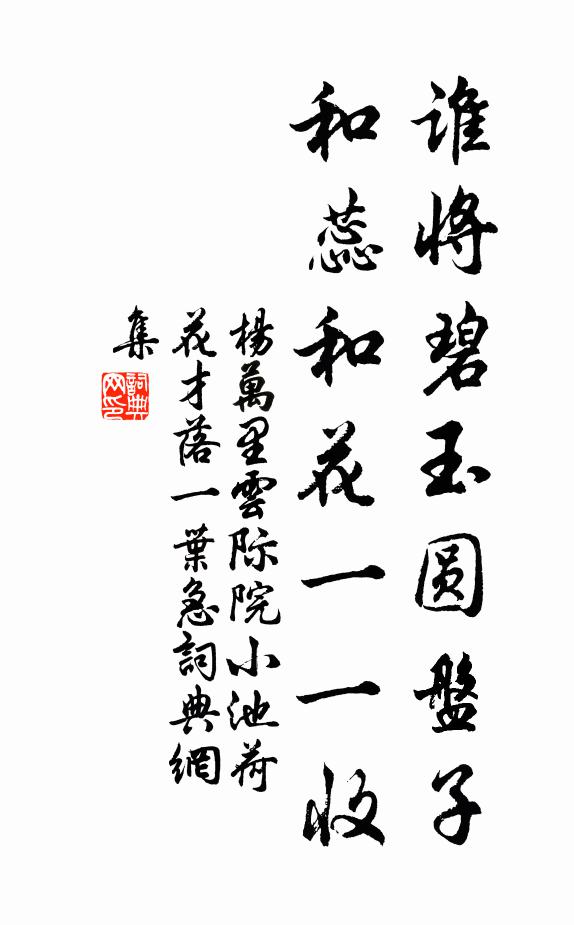 谁將碧玉圆盤子
和蕊和花一一收
楊萬里雲际院小池荷
花才落一葉急詞典網
集
詞典
网印